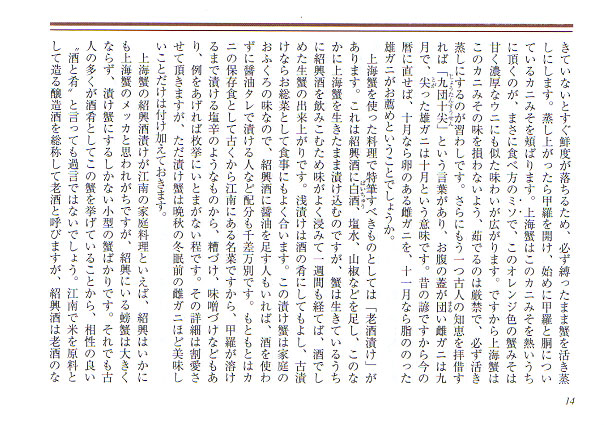 きていないとすぐ鮮度が落ちるため、必ず縛ったまま蟹を活き蒸
しにします。蒸し上がったら甲羅を開け、始めに甲羅と胴につい
ているカニみそを頬ばります。上海蟹はこのカニみそを熱いうち
に頂くのが、まさに食べ方のミソで、このオレンジ色の蟹みそは
甘く濃厚なウニにも似た味わいが広がります。ですから上海蟹は
このカニみその味を損わないよう、茹でるのは厳禁で、必ず活き
蒸しにするのが習わしです。さらにもう一つ古人の知恵を拝借す
れば「九団十尖」という言葉があり、お腹の蓋が団い雌ガニは九
月で、尖った雄ガニは十月という意味です。昔の諺ですから今の
暦に直せば、十月なら卵のある雌ガニを、十一月なら脂ののった
雄ガニがお薦めということでしょうか。
上海蟹を使った料理で特筆すべきものとしては「老酒漬け」が
あります。これは紹興酒に白酒、塩水、山椒などを足し、このな
かに上海蟹を生きたまま漬け込むのですが、蟹は生きているうち
に紹興酒を飲みこむため味がよく浸みて一週間も経てば、酒でし
めた生蟹の出来上がりです。浅漬けは酒の肴にしてもよし、古漬
けならお総菜として食事にもよく合います。この漬け蟹は家庭の
おふくろの味なので、紹興酒に醤油を足す人もいれば、酒を使わ
ずに醤油タレで漬ける人など配分も千差万別です。もともとはカ
ニの保存食として古くから江南にある名菜ですから、甲羅が溶け
るまで漬ける塩辛のようなものから、糟づけ、味噌づけなどもあ
り、例をあげれば枚挙にいとまがない程です。その詳細は割愛さ
せて頂きますが、ただ漬け蟹は晩秋の冬眠前の雌ガニほど美味し
いことだけは付け加えておきます。
上海蟹の紹興酒漬けが江南の家庭料理といえば、紹興はいかに
も上海蟹のメッカと思われがちですが、紹興にいる螃蟹は大きく
ならず、漬け蟹にするしかない小型の蟹ばかりです。それでも古
人の多くが酒肴としてこの蟹を挙げていることから、相性の良い
〝酒と肴〟と言っても過言ではないでしょう。江南で米を原料と
して造る醸造酒を総称して老酒と呼びますが、紹興酒は老酒のな
14